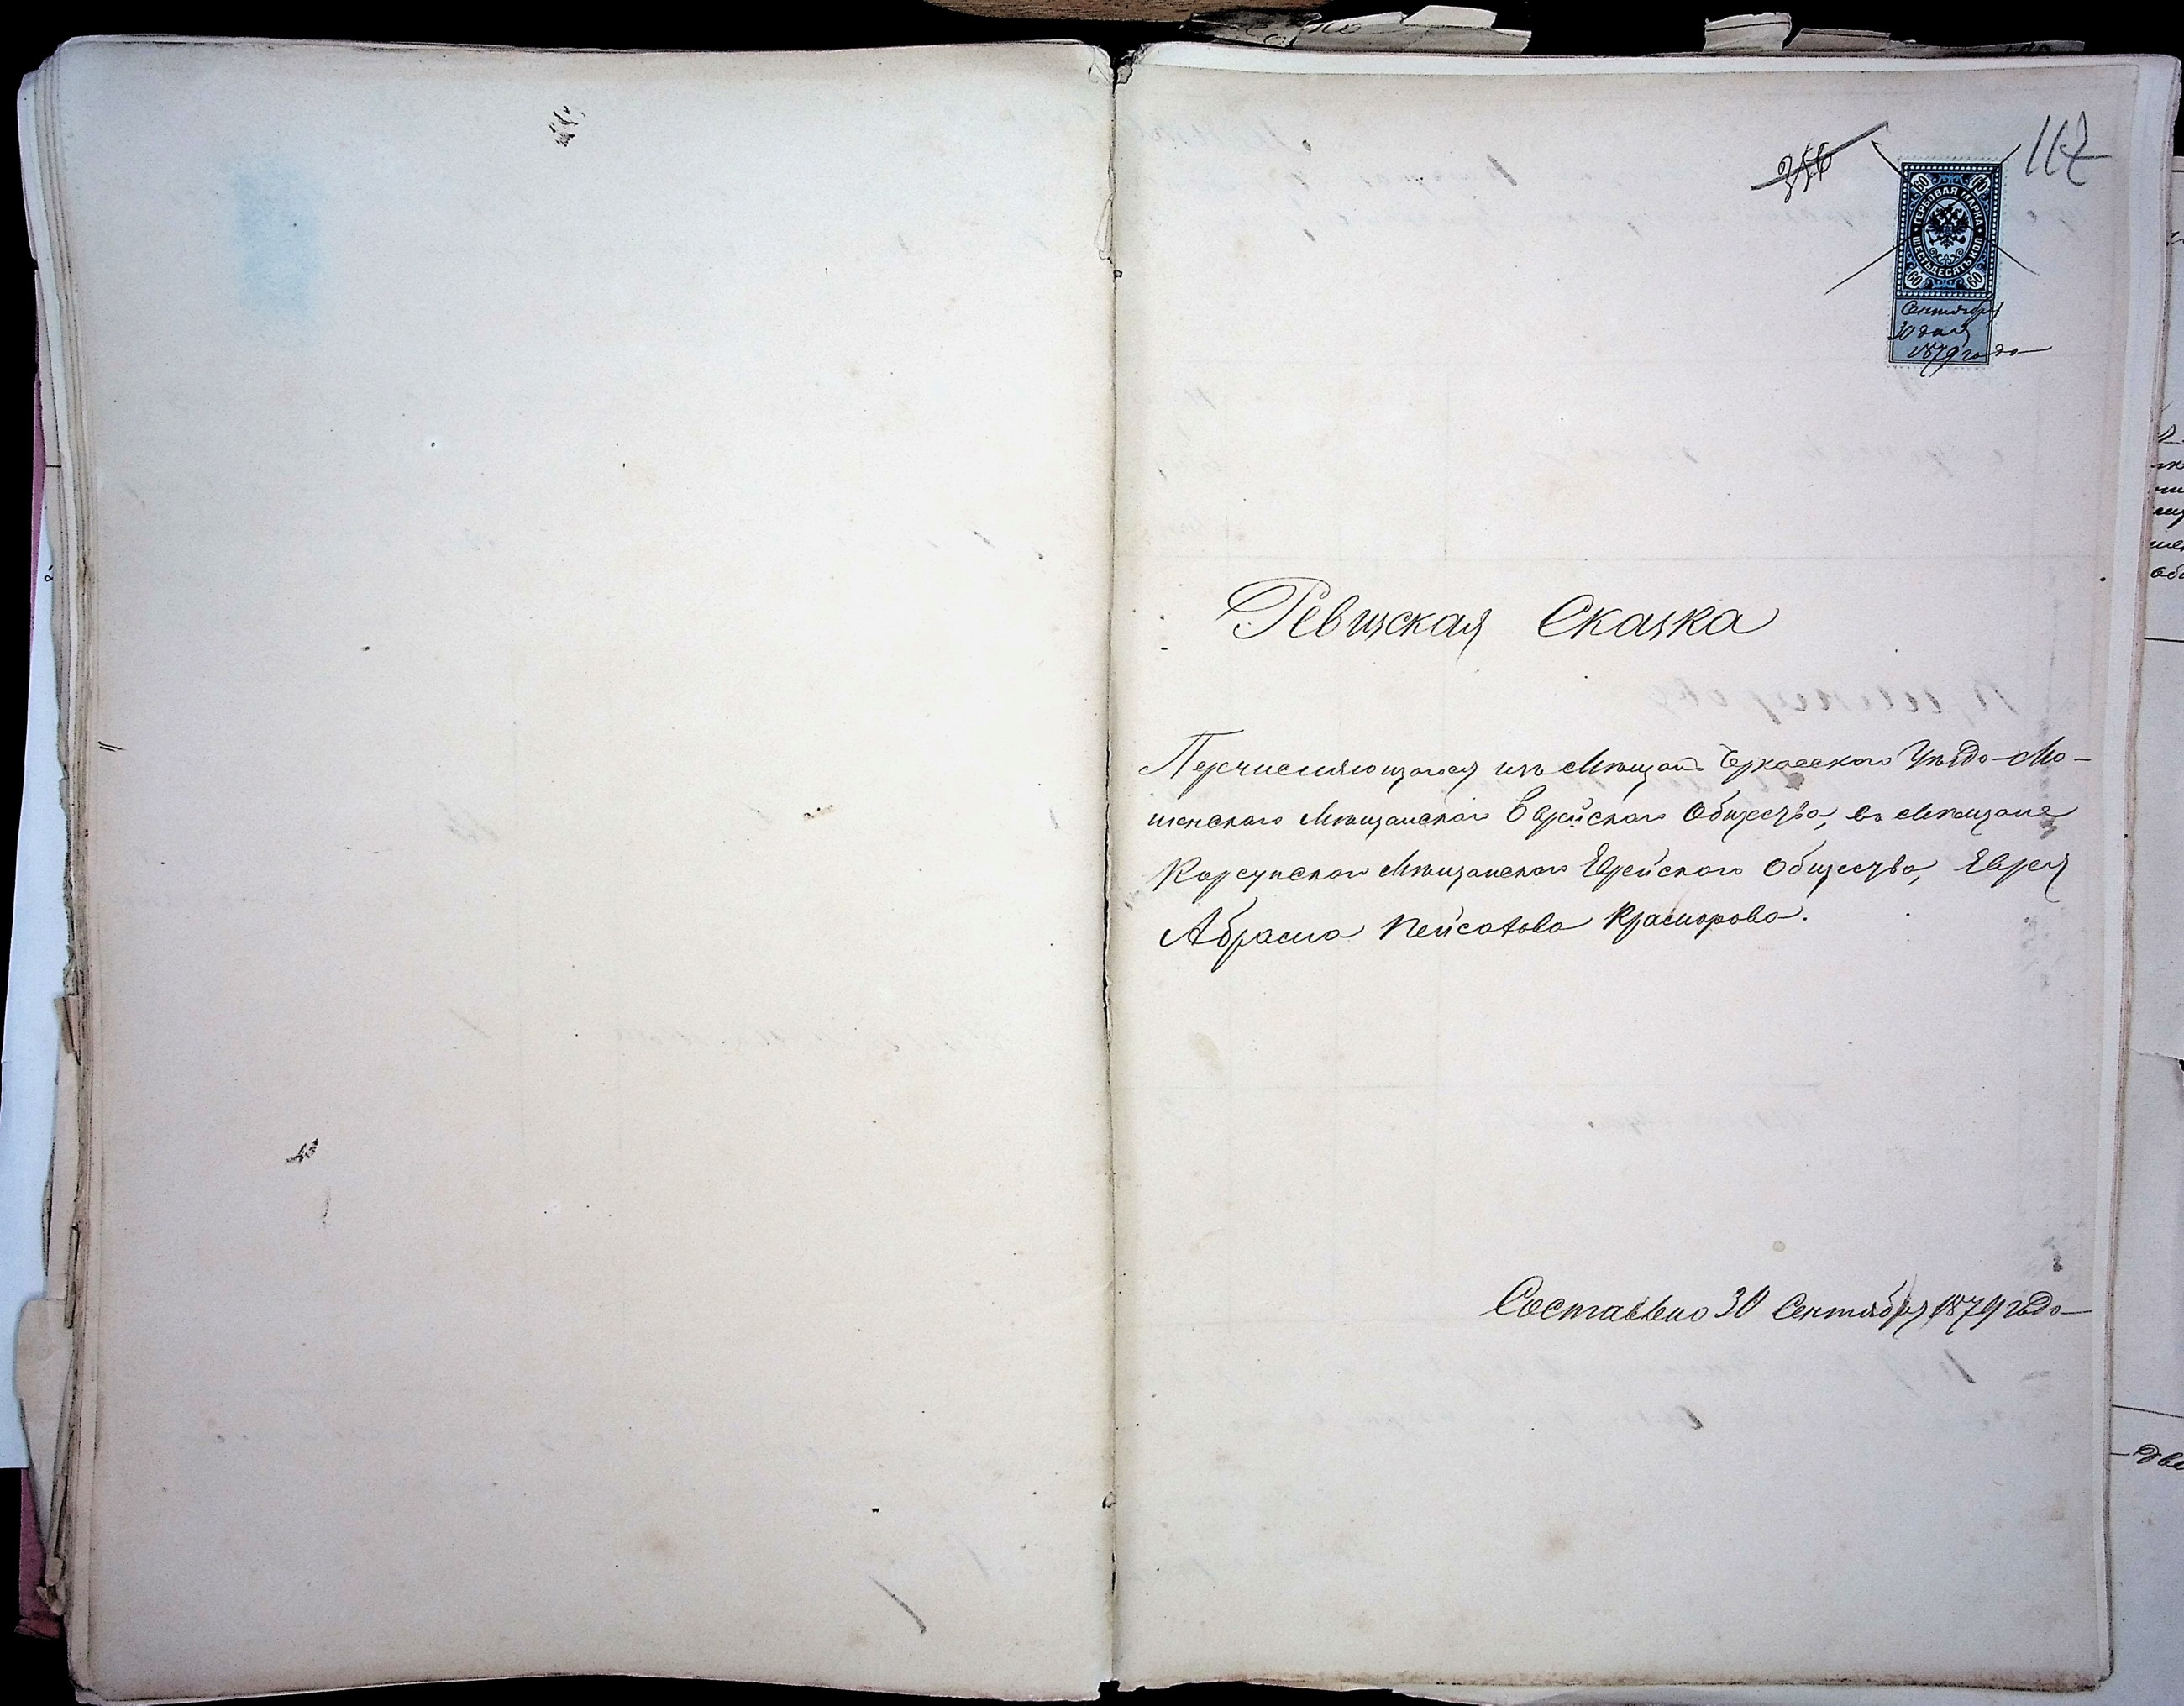 117
60 60
ГЕРБОВАЯ МАРКА
ШЕСТЬДЕСЯТЪ КОП
60 60
Сентября
30 дня
1879 года
Ревизская Сказка
Перечисляющагося изъ Мѣщанъ Черкасскаго Уѣзда Мо-
шенскаго Мѣщанскаго Еврейскаго Общества, въ Мѣщане
Корсунскаго Мѣщанскаго Еврейскаго Общества, Еврея
Абрама Пейсахова
Составлено 30 Сентября 1879 года